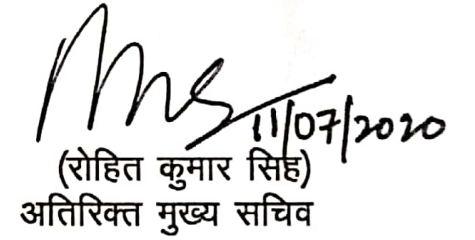 11/07/2020
(रोहित कुमार सिंह)
अतिरिक्त मुख्य सचिव